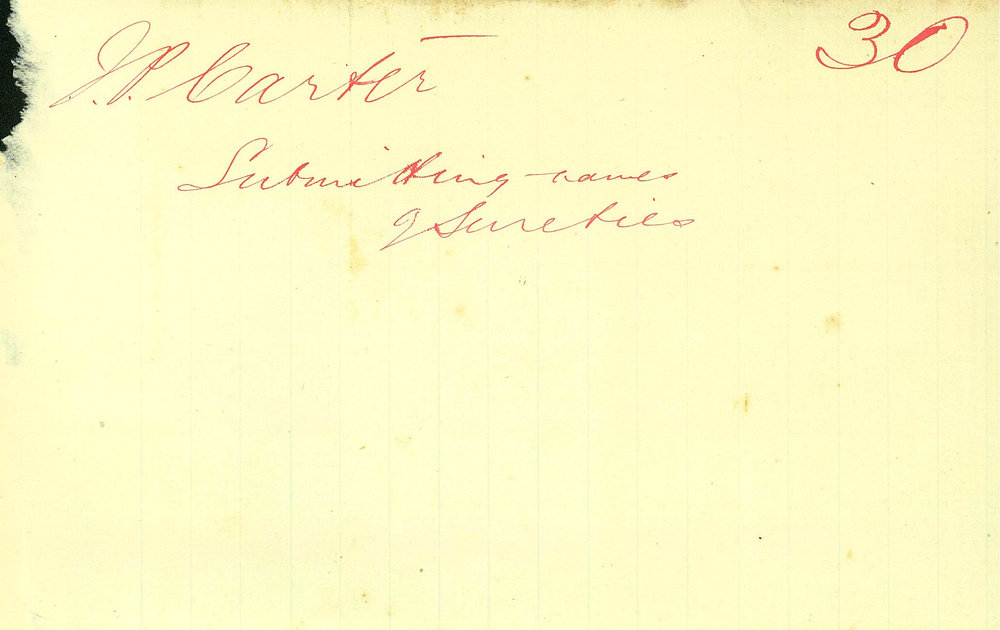 J.P. Carter
30
Submitting names
of Sureties